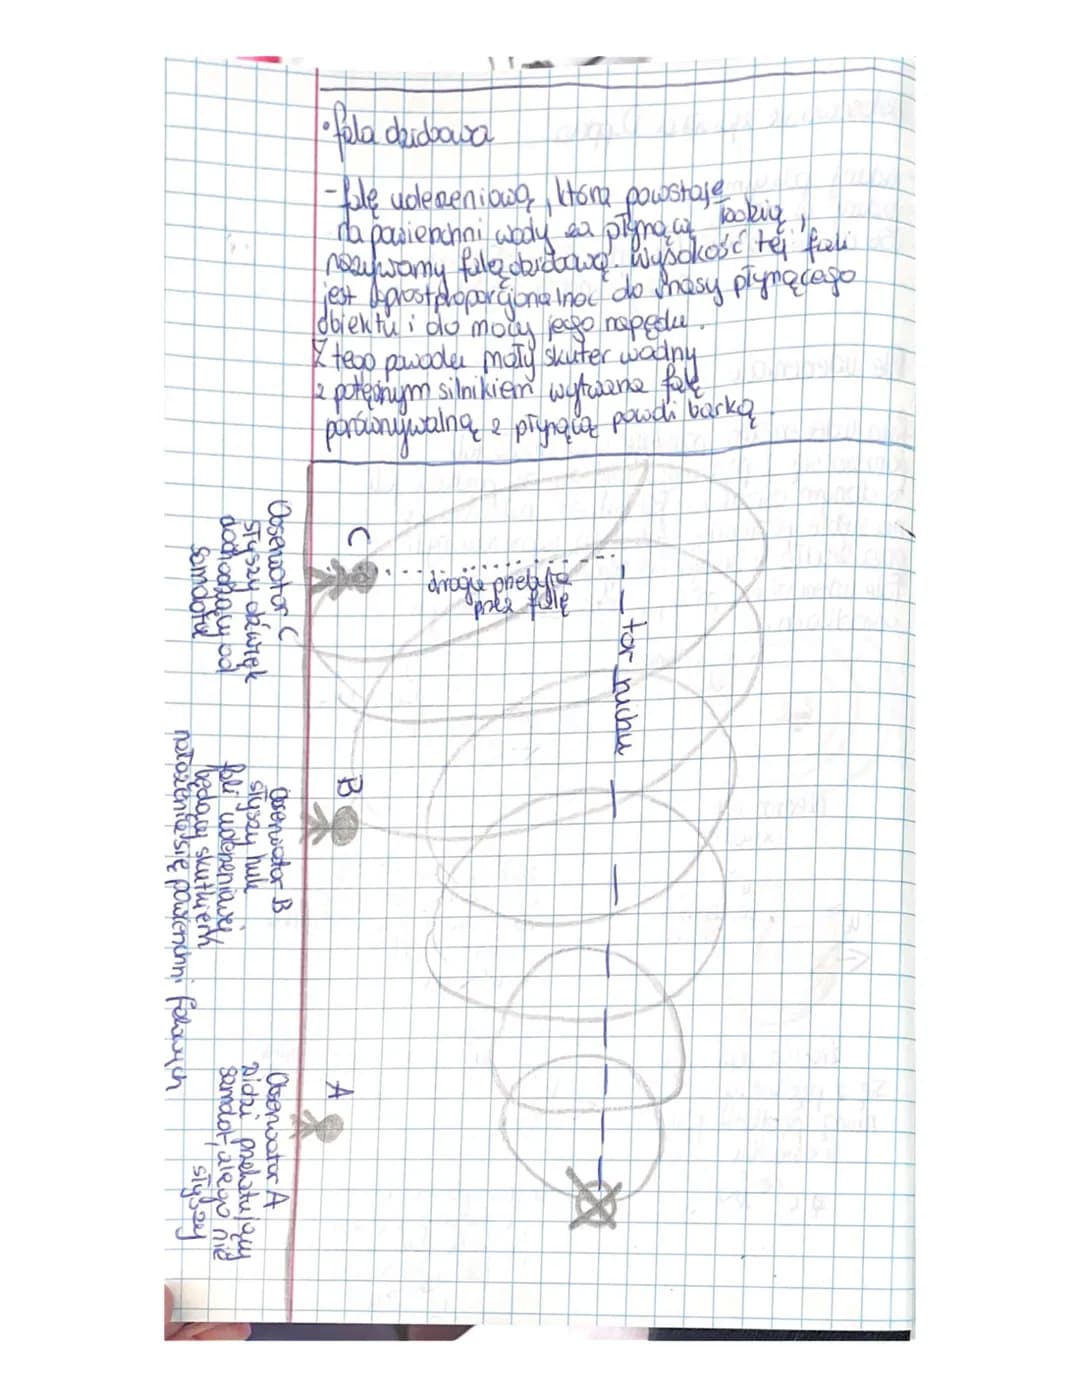 • fala dziobowa
- falę uderzeniową, która powstaje
na powierzchni wody za płynącą łodzią,
nazywamy falą dziobową. Wysokość tej fali
jest wprostproporcjonalna do masy płynącego
obiektu i do mocy jego napędu.
Z tego powodu mały skuter wodny
z potężnym silnikiem wytwarza falę
porównywalną z płynącą powoli barką
C
Obserwator C
słyszy dźwięk
dochodzący od
samolotu
droga przebyta
przez falę
tor ruchu
B
Obserwator B
słyszy huk
fali uderzeniowej,
będący skutkiem
nałożenia się powierzchni falowych
A
Obserwator A
widzi przelatujący
samolot, ale go nie
słyszy